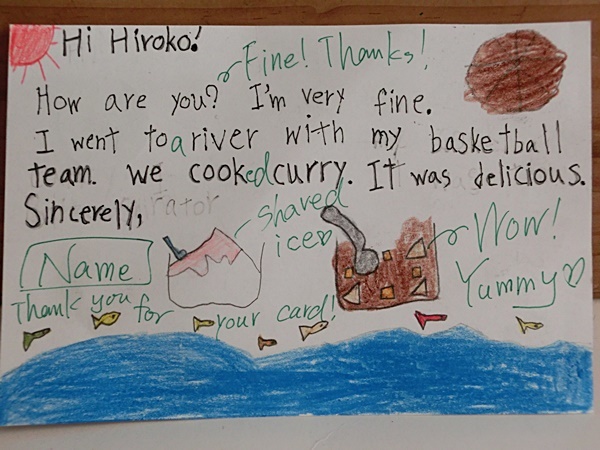 Hi Hiroko!
Fine! Thanks!
How are you? I'm very fine.
I went to a river with my basketball
team. we cooked curry. It was delicious.
Sincerely,
shaved
ice♡
Wow!
Yummy♡
Name
Thank you for your card!